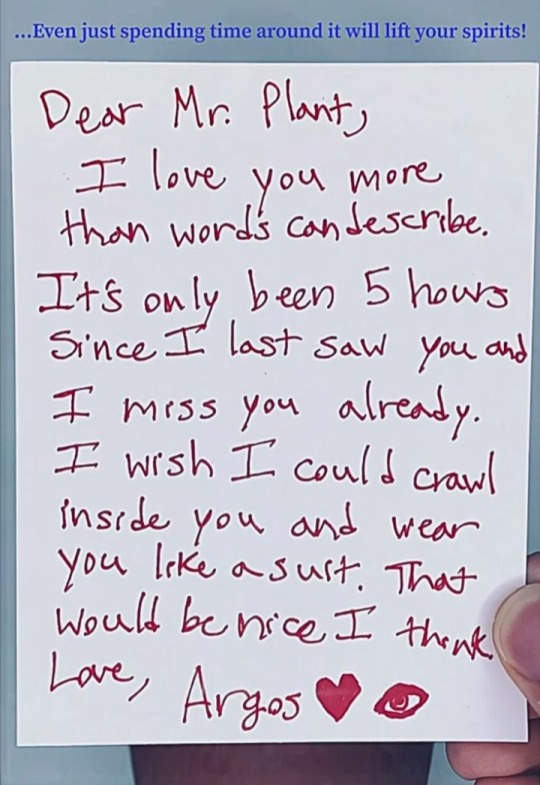 ...Even just spending time around it will lift your spirits!
Dear Mr. Plant,
I love you more
than words can describe.
It's only been 5 hours
Since I last saw you and
I miss you already.
I wish I could crawl
inside you and wear
you like a suit. That
would be nice I think.
Love,
Argos